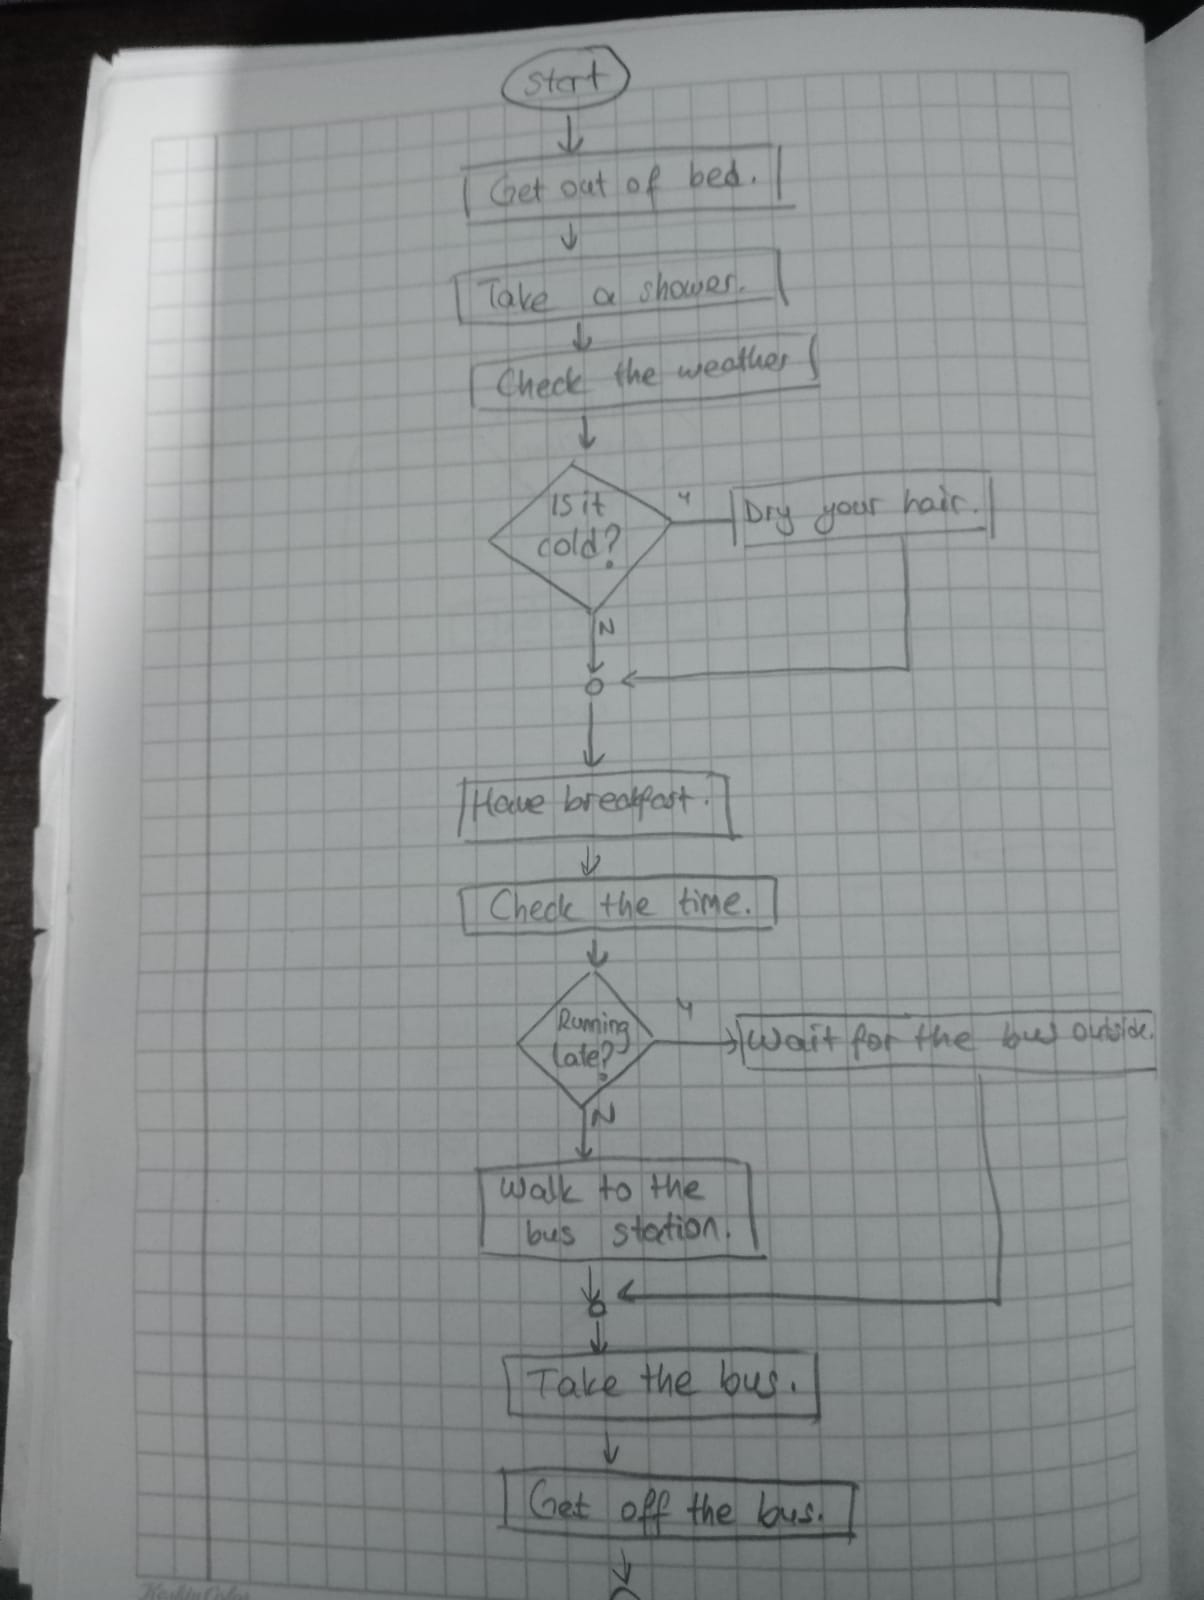 Start
Get out of bed.
Take a shower.
Check the weather
Is it
cold?
Y
Dry your hair.
N
Have breakfast.
Check the time.
Running
late?
Y
Wait for the bus outside.
N
Walk to the
bus station.
Take the bus.
Get off the bus.